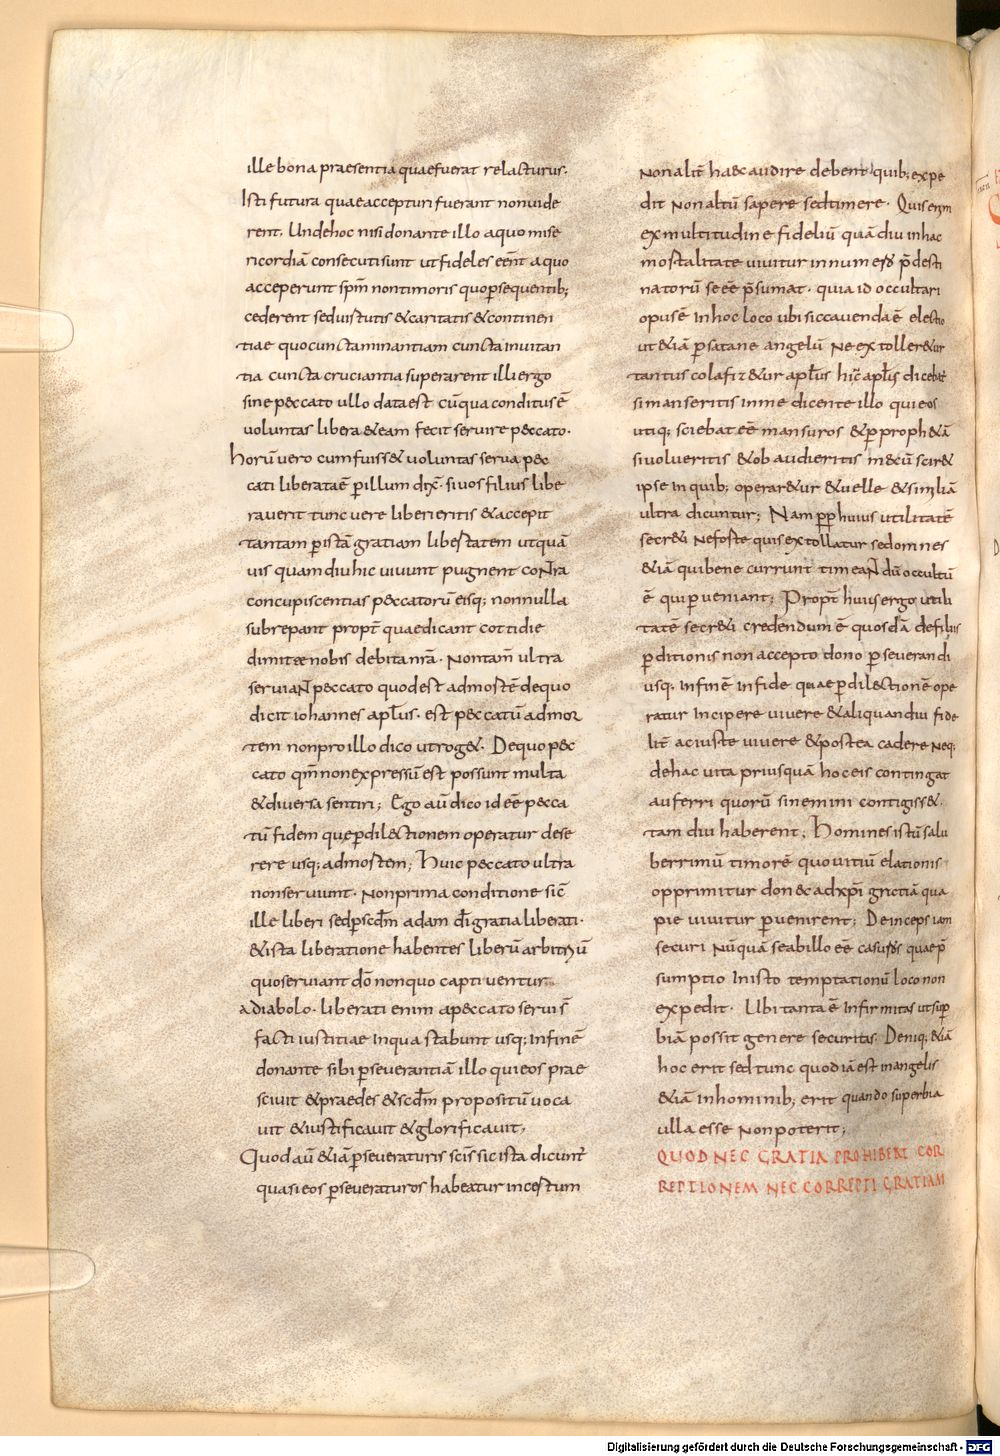 ille bona praesentia quae fuerat relicturus.
Isti futura quae accepturi fuerant non uide
rent. Unde hoc nisi donante illo a quo mise
ricordiā consecuti sunt ut fideles eēnt a quo
acceperunt spm̄ non timoris quo psequentib;
cederent sed uirtutis & caritatis & continen
tiae quo cuncta minantiam cuncta inuitan
tia cuncta cruciantia superarent illi ergo
sine peccato ullo data est cū qua conditus ē
uoluntas libera & eam fecit seruire peccato.
horū uero cum fuiss& uoluntas serua pec
cati liberata ē p illum dix̄. si uos filius libe
rauerit tunc uere liberi eritis & accepit
tantam p istā gratiam libertatem ut quā
uis quamdiu hic uiuunt pugnent contra
concupiscentias peccatorū eisq; nonnulla
subrepant propt̄ quae dicant cottidie
dimitte nobis debita nr̄a. Non tam̄ ultra
seruiant peccato quod est ad mortē de quo
dicit iohannes apl̄us. est peccatū ad mor
tem non pro illo dico ut rog&. De quo pec
cato qm̄ non expressū est possunt multa
& diuersa sentiri; Ego aū dico id eē pecca
tū fidem que p dilectionem operatur dese
rere usq; ad mortem; Huic peccato ultra
non seruiunt. Non prima conditione sic̄
ille liberi sed p scd̄m adam dī gratia liberati.
& ista liberatione habentes liberū arbitriū
quo seruiant dō non quo capti uentur
a diabolo. liberati enim a peccato serui s̄
facti iustitiae in qua stabunt usq; in finē
donante sibi pseuerantiā illo qui eos prae
sciuit & praedes & scd̄m propositū uoca
uit & iustificauit & glorificauit;
Quod aū &iā pseueraturis sc̄is sic ista dicunt̄
quasi eos pseueraturos habeatur incertum
Non alit̄ haec audire debent quib; expe
dit non altū sapere sed timere. Quis enim
ex multitudine fideliū quādiu in hac
mortalitate uiuitur in numero p̄desti
natorū se eē p̄sumat. quia id occultari
opus ē in hoc loco ubi sic cauenda ē elatio
ut &iā p satane angelū ne extoller&ur
tantus colafiz&ur apl̄us hic apl̄is diceb&
si manseritis in me dicente illo qui eos
utiq; sciebat eē mansuros & p proph&ā
si uolueritis & obaudieritis me cū scir&
ipse in quib; operar&ur & uelle & similia
ultra dicuntur; Nam pp huius utilitatē
secr&i ne forte quis extollatur sed omnes
&iā qui bene currunt timeant dū occultū
ē qui perueniant; Propt̄ huius ergo utili
tatē secr&i credendum ē quosdā de filiis
pditionis non accepto dono pseuerandi
usq; in finē in fide quae p dilectionē ope
ratur incipere uiuere & aliquandiu fide
lit̄ ac iuste uiuere & postea cadere neq;
de hac uita priusquā hoc eis contingat
auferri quorū si nemini contigiss&.
tam diu haberent; Homines istū salu
berrimū timorē quo uitiū elationis
opprimitur donec ad xp̄i gratiā qua
pie uiuitur peruenirent; Deinceps iam
securi nūquā se ab illo eē casuros quae p̄
sumptio in isto temptationū loco non
expedit. Ubi tanta ē infirmitas ut sup
biā possit genere securitas. Deniq; &iā
hoc erit sed tunc quod iā est in angelis
&iā in hominib; erit quando superbia
ulla esse non poterit;
QUOD NEC GRATIA PROHIBEAT COR
REPTIONEM NEC CORREPTI GRATIAM
Digitalisierung gefördert durch die Deutsche Forschungsgemeinschaft - DFG